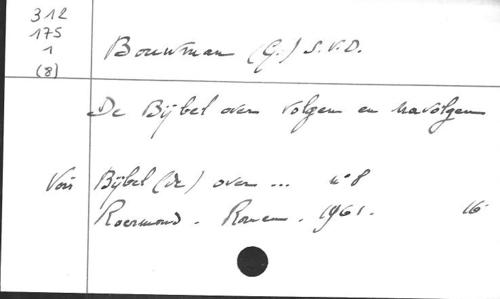 312
175
1
(8)
Bouwman (G.) S.V.D.
De Bijbel over volgen en navolgen
Voir Bijbel (de) over ... n° 8
Roermond. Romen. 1961. 16°